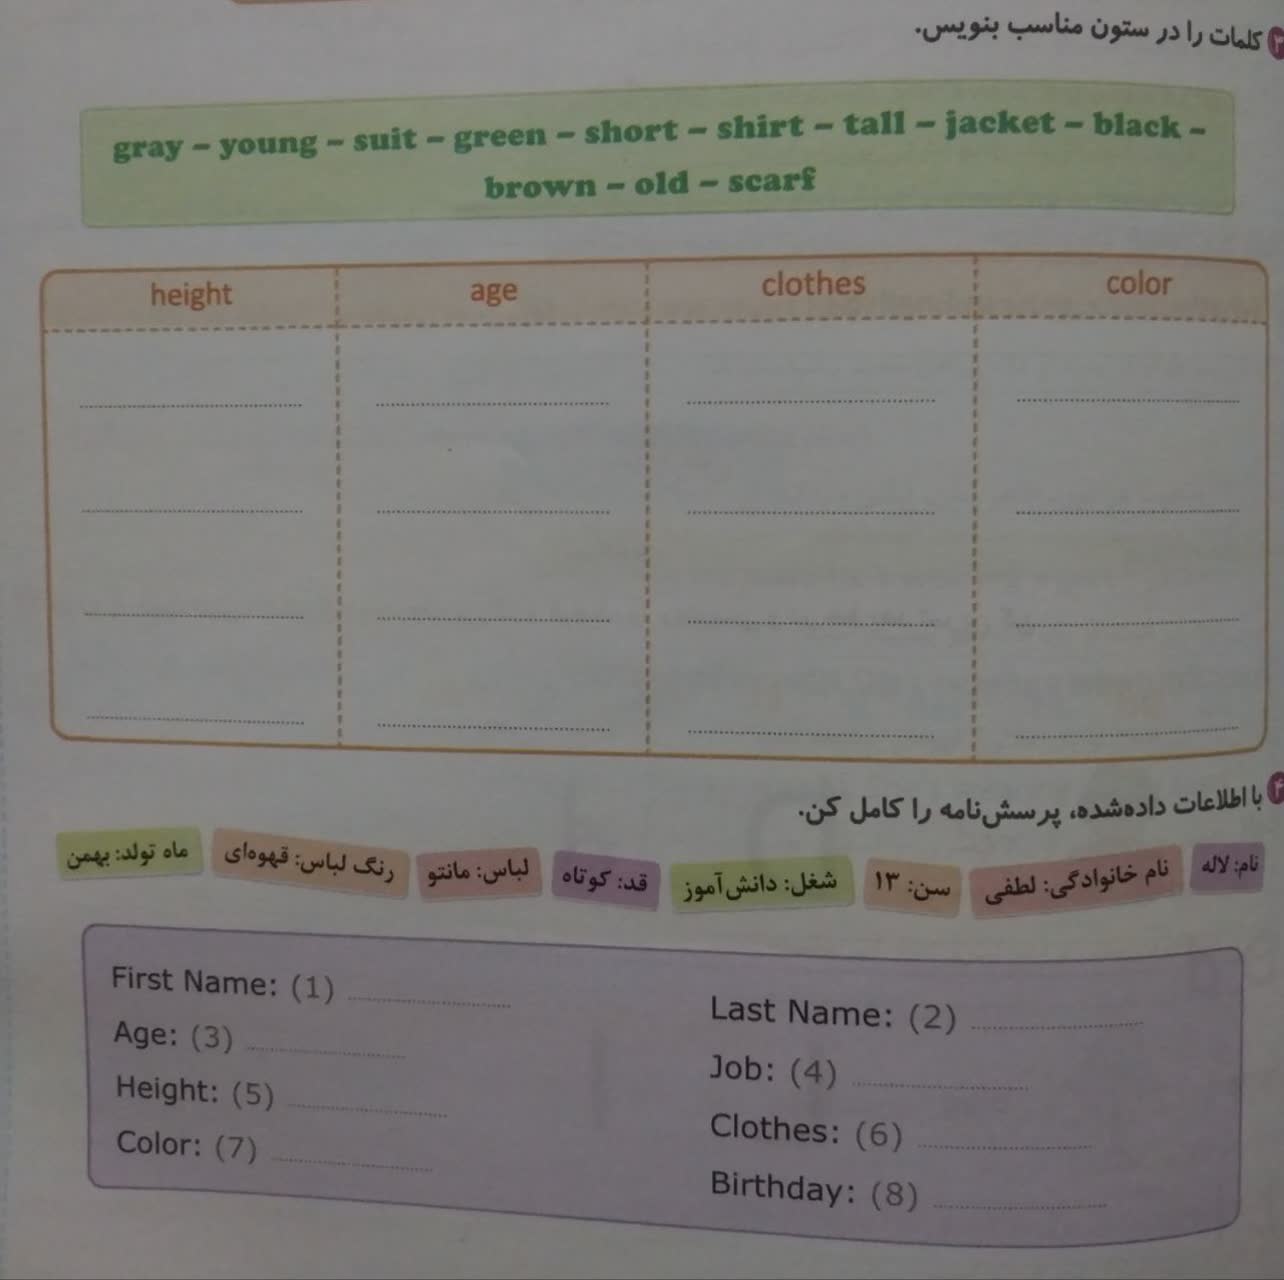 ۳ کلمات را در ستون مناسب بنویس.
gray – young – suit – green – short – shirt – tall – jacket – black –
brown – old – scarf
height age clothes color
۴ با اطلاعات داده‌شده، پرسش‌نامه را کامل کن.
نام: لاله نام خانوادگی: لطفی سن: ۱۳ شغل: دانش‌آموز قد: کوتاه لباس: مانتو رنگ لباس: قهوه‌ای ماه تولد: بهمن
First Name: (1) Last Name: (2)
Age: (3) Job: (4)
Height: (5) Clothes: (6)
Color: (7) Birthday: (8)